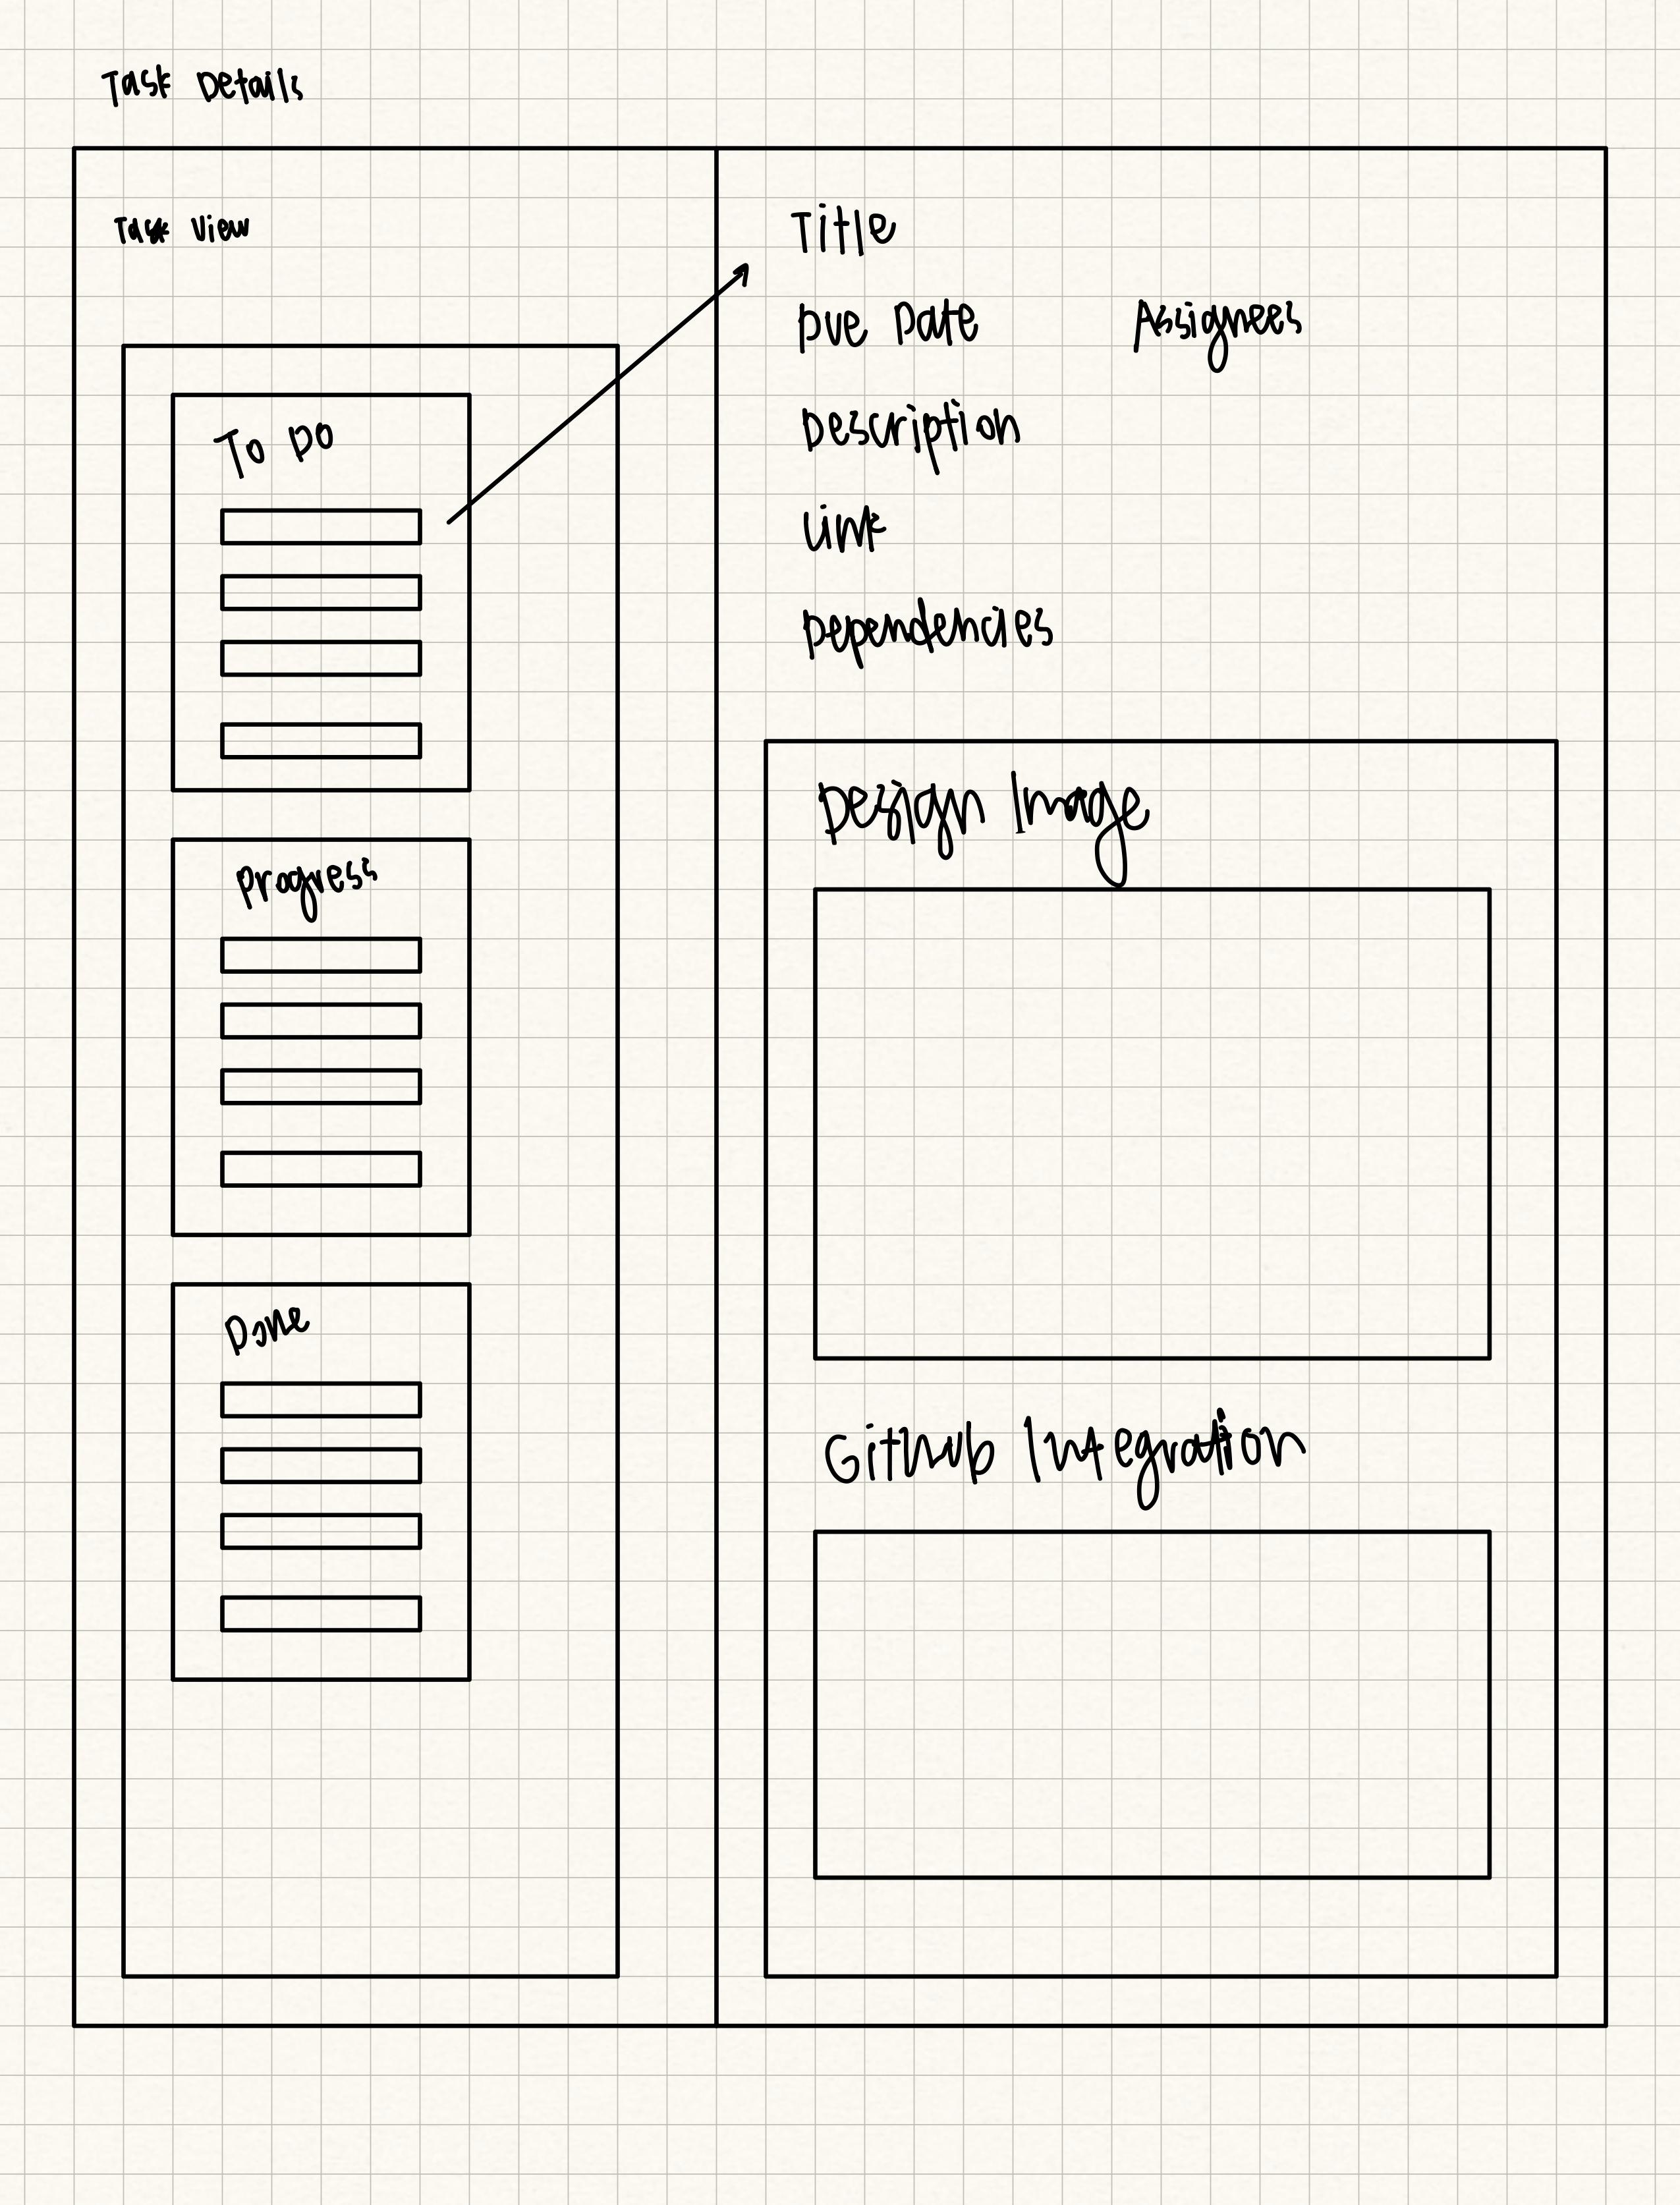 Task Details
Task View
To Do
Progress
Done
Title
Due Date Assignees
Description
Link
Dependencies
Design Image
Github Integration